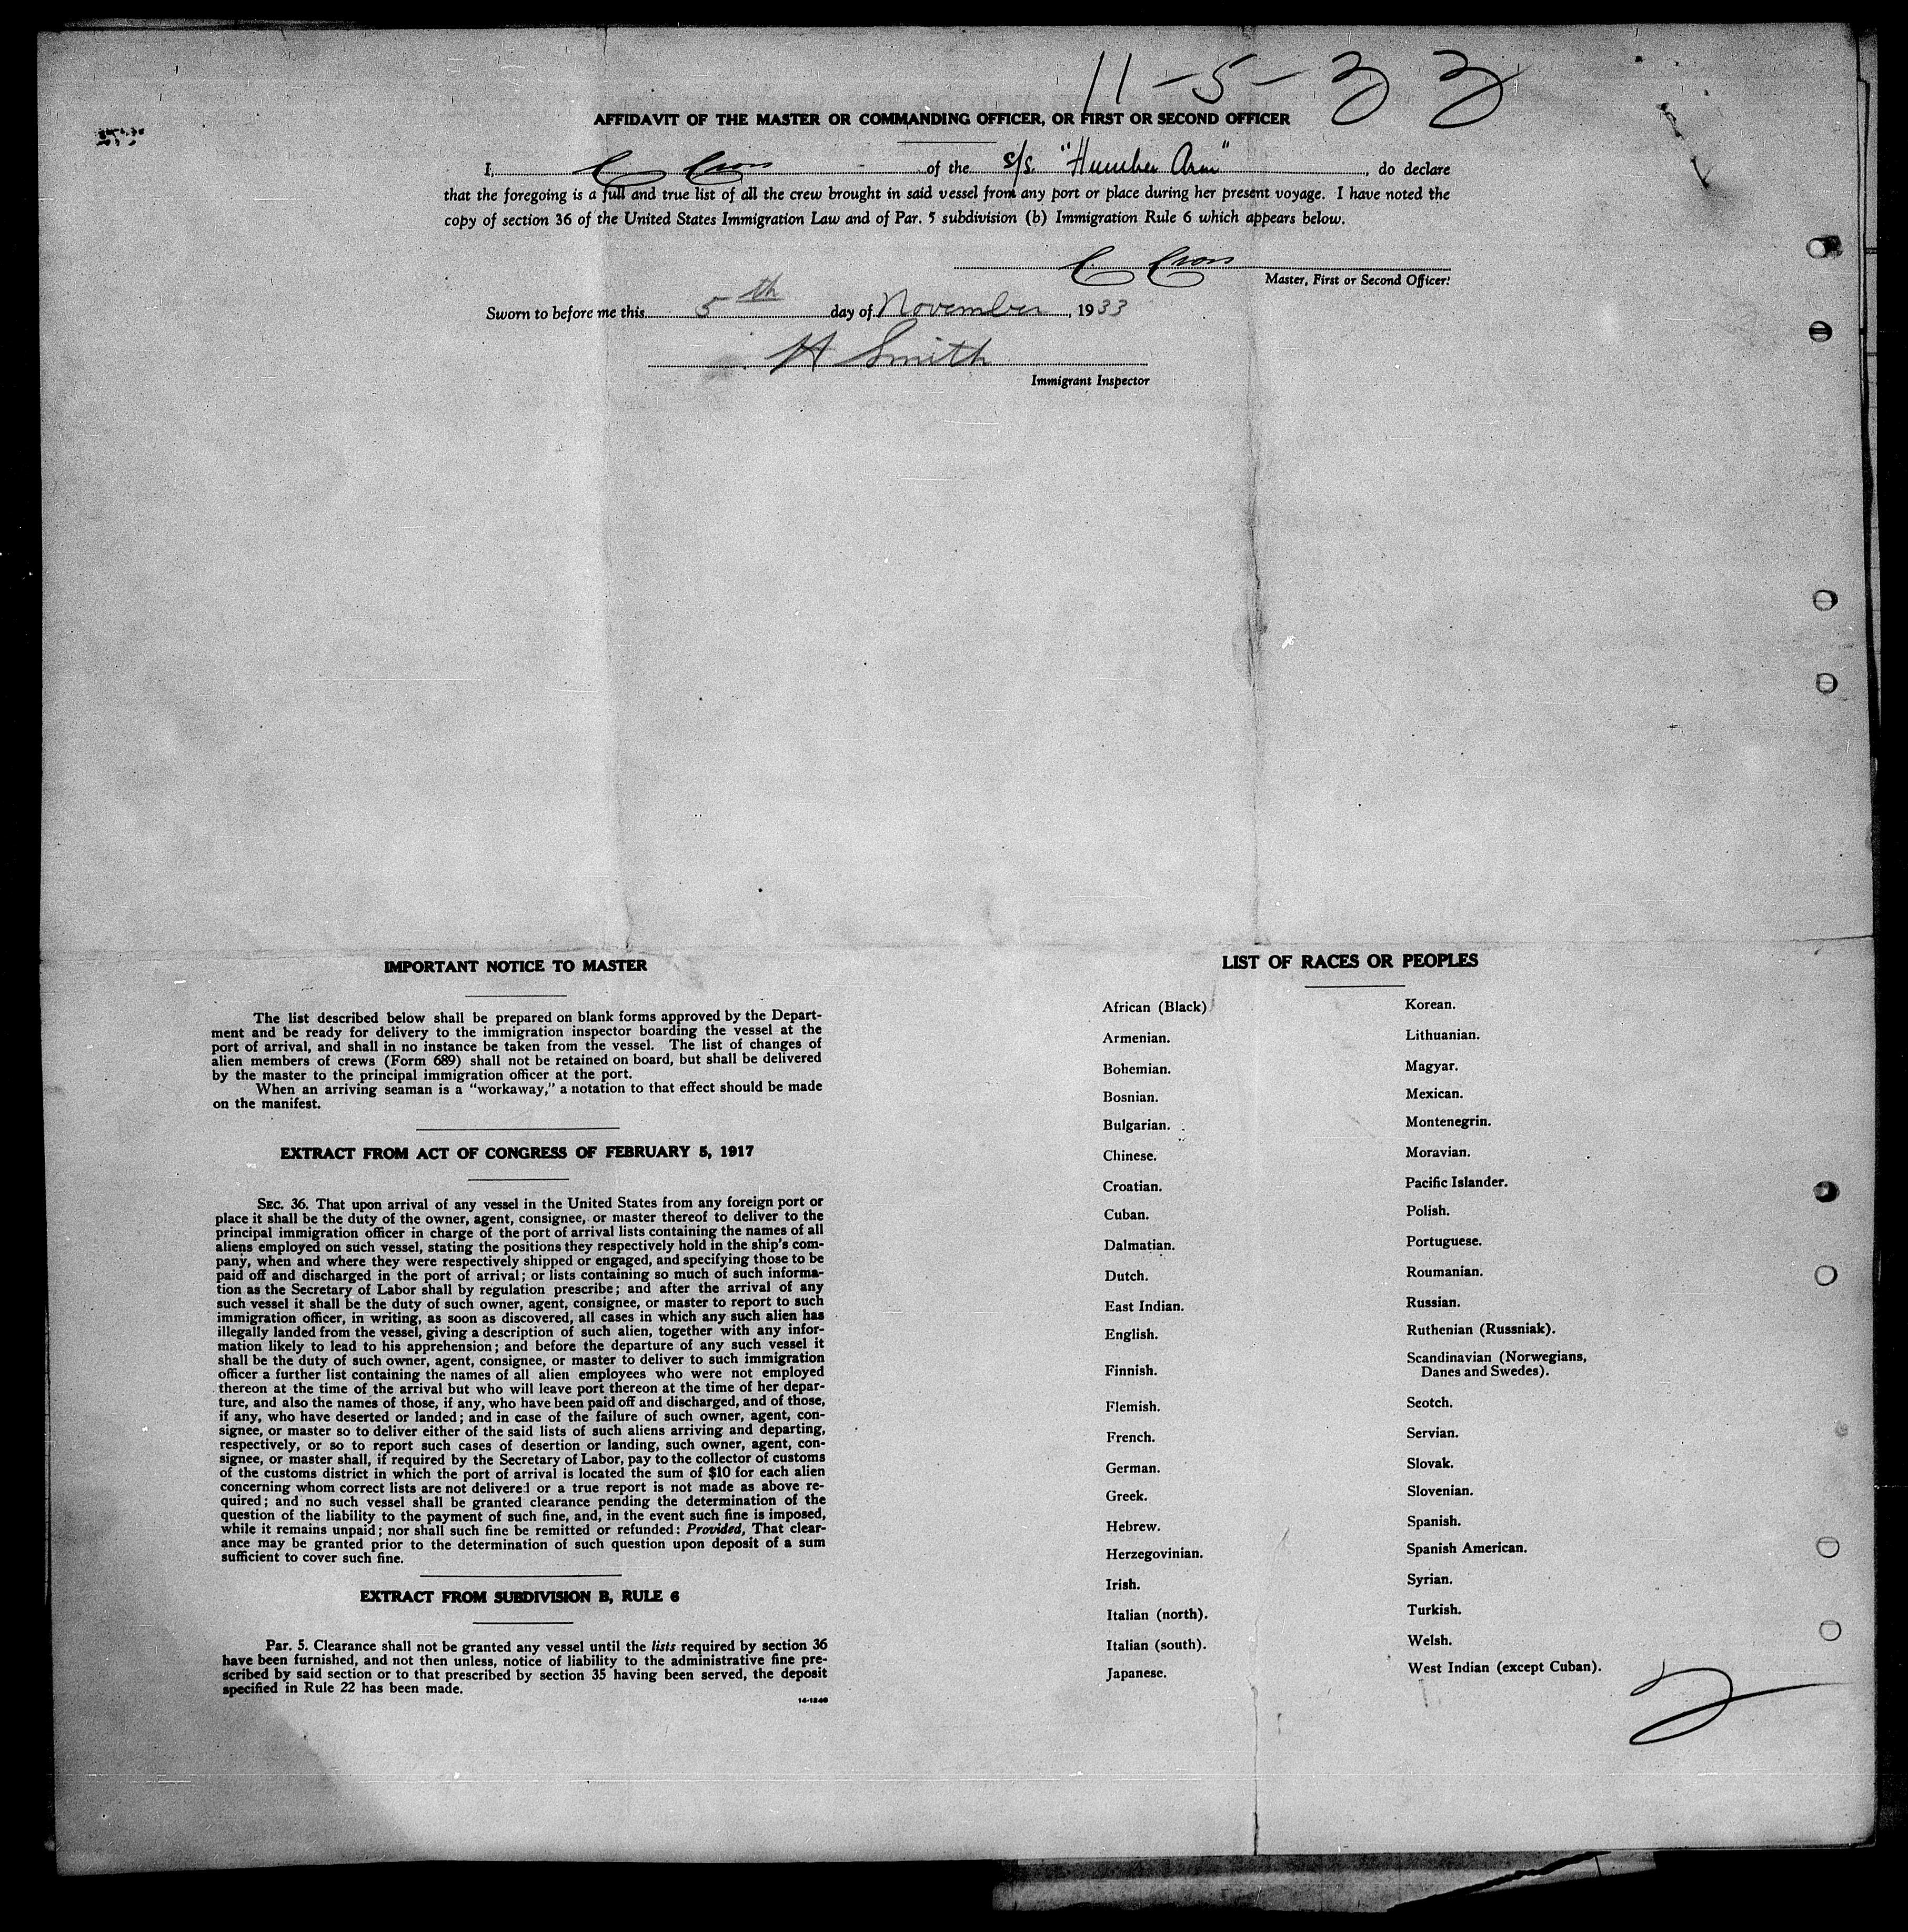 11-5-33
AFFIDAVIT OF THE MASTER OR COMMANDING OFFICER, OR FIRST OR SECOND OFFICER
I, C Cross of the s/s. "Humber Arm", do declare
that the foregoing is a full and true list of all the crew brought in said vessel from any port or place during her present voyage. I have noted the
copy of section 36 of the United States Immigration Law and of Par. 5 subdivision (b) Immigration Rule 6 which appears below.
C Cross
Master, First or Second Officer.
Sworn to before me this 5th day of November, 1933
H Smith
Immigrant Inspector
IMPORTANT NOTICE TO MASTER
The list described below shall be prepared on blank forms approved by the Depart-
ment and be ready for delivery to the immigration inspector boarding the vessel at the
port of arrival, and shall in no instance be taken from the vessel. The list of changes of
alien members of crews (Form 689) shall not be retained on board, but shall be delivered
by the master to the principal immigration officer at the port.
When an arriving seaman is a "workaway," a notation to that effect should be made
on the manifest.
EXTRACT FROM ACT OF CONGRESS OF FEBRUARY 5, 1917
SEC. 36. That upon arrival of any vessel in the United States from any foreign port or
place it shall be the duty of the owner, agent, consignee, or master thereof to deliver to the
principal immigration officer in charge of the port of arrival lists containing the names of all
aliens employed on such vessel, stating the positions they respectively hold in the ship's com-
pany, when and where they were respectively shipped or engaged, and specifying those to be
paid off and discharged in the port of arrival; or lists containing so much of such informa-
tion as the Secretary of Labor shall by regulation prescribe; and after the arrival of any
such vessel it shall be the duty of such owner, agent, consignee, or master to report to such
immigration officer, in writing, as soon as discovered, all cases in which any such alien has
illegally landed from the vessel, giving a description of such alien, together with any infor-
mation likely to lead to his apprehension; and before the departure of any such vessel it
shall be the duty of such owner, agent, consignee, or master to deliver to such immigration
officer a further list containing the names of all alien employees who were not employed
thereon at the time of the arrival but who will leave port thereon at the time of her depar-
ture, and also the names of those, if any, who have been paid off and discharged, and of those,
if any, who have deserted or landed; and in case of the failure of such owner, agent, con-
signee, or master so to deliver either of the said lists of such aliens arriving and departing,
respectively, or so to report such cases of desertion or landing, such owner, agent, con-
signee, or master shall, if required by the Secretary of Labor, pay to the collector of customs
of the customs district in which the port of arrival is located the sum of $10 for each alien
concerning whom correct lists are not delivered or a true report is not made as above re-
quired; and no such vessel shall be granted clearance pending the determination of the
question of the liability to the payment of such fine, and, in the event such fine is imposed,
while it remains unpaid; nor shall such fine be remitted or refunded: Provided, That clear-
ance may be granted prior to the determination of such question upon deposit of a sum
sufficient to cover such fine.
EXTRACT FROM SUBDIVISION B, RULE 6
Par. 5. Clearance shall not be granted any vessel until the lists required by section 36
have been furnished, and not then unless, notice of liability to the administrative fine pre-
scribed by said section or to that prescribed by section 35 having been served, the deposit
specified in Rule 22 has been made.
14-1240
LIST OF RACES OR PEOPLES
African (Black)
Armenian.
Bohemian.
Bosnian.
Bulgarian.
Chinese.
Croatian.
Cuban.
Dalmatian.
Dutch.
East Indian.
English.
Finnish.
Flemish.
French.
German.
Greek.
Hebrew.
Herzegovinian.
Irish.
Italian (north).
Italian (south).
Japanese.
Korean.
Lithuanian.
Magyar.
Mexican.
Montenegrin.
Moravian.
Pacific Islander.
Polish.
Portuguese.
Roumanian.
Russian.
Ruthenian (Russniak).
Scandinavian (Norwegians,
Danes and Swedes).
Scotch.
Servian.
Slovak.
Slovenian.
Spanish.
Spanish American.
Syrian.
Turkish.
Welsh.
West Indian (except Cuban).
2